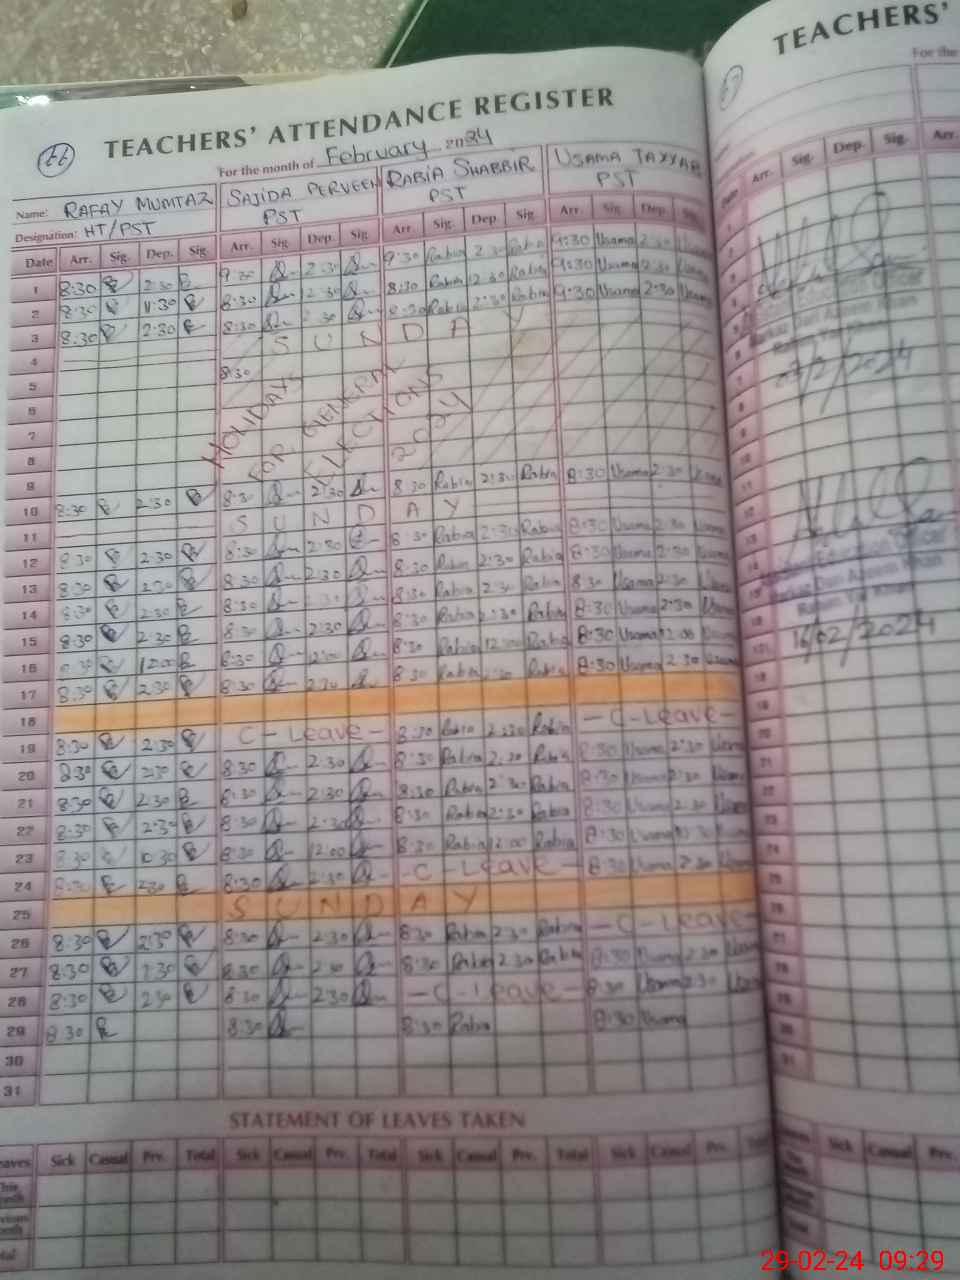 66
TEACHERS' ATTENDANCE REGISTER
For the month of February 2024
Name: RAFAY MUMTAZ SAJIDA PERVEEN RABIA SHABBIR USAMA TAYYAB
Designation: HT/PST PST PST PST
Date Arr. Sig. Dep. Sig. Arr. Sig. Dep. Sig. Arr. Sig. Dep. Sig. Arr. Sig. Dep. Sig.
1 8:30 2:30 9:30 2:30 9:30 Rabia 2:30 Rabia 9:30 Usama 2:30 Usama
2 8:30 8:30 2:30 8:30 Rabia 12:30 Rabia 9:30 Usama 2:30 Usama
3 8:30 2:30 8:30 2:30 8:30 Rabia 2:30 Rabia 9:30 Usama 2:30 Usama
4 SUNDAY
5 8:30
6
7
8
HOLIDAYS
FOR GENERAL
ELECTIONS
2024
9
10 8:30 2:30 8:30 2:30 8:30 Rabia 2:30 Rabia 8:30 Usama 2:30 Usama
11 SUNDAY
12 8:30 2:30 8:30 2:30 8:30 Rabia 2:30 Rabia 8:30 Usama 2:30 Usama
13 8:30 2:30 8:30 2:30 8:30 Rabia 2:30 Rabia 8:30 Usama 2:30 Usama
14 8:30 2:30 8:30 8:30 Rabia 2:30 Rabia 8:30 Usama 2:30 Usama
15 8:30 2:30 8:30 2:30 8:30 Rabia 2:30 Rabia 8:30 Usama 2:30 Usama
16 12:00 8:30 12:00 8:30 Rabia 12:00 Rabia 8:30 Usama 12:00 Usama
17 8:30 2:30 8:30 2:30 8:30 Rabia 2:30 Rabia 8:30 Usama 2:30 Usama
18
19 8:30 2:30 C-Leave- 8:30 Rabia 2:30 Rabia -C-Leave-
20 8:30 2:30 8:30 2:30 8:30 Rabia 2:30 Rabia 8:30 Usama 2:30 Usama
21 8:30 2:30 8:30 2:30 8:30 Rabia 2:30 Rabia 8:30 Usama 2:30 Usama
22 8:30 2:30 8:30 2:30 8:30 Rabia 2:30 Rabia 8:30 Usama 2:30 Usama
23 8:30 8:30 12:00 8:30 Rabia 12:00 Rabia 8:30 Usama Usama
24 8:30 2:30 8:30 2:30 -C-Leave- 8:30 Usama 2:30 Usama
25 SUNDAY
26 8:30 2:30 8:30 2:30 8:30 Rabia 2:30 Rabia -C-Leave-
27 8:30 2:30 8:30 2:30 8:30 Rabia 2:30 Rabia 8:30 Usama 2:30 Usama
28 8:30 2:30 8:30 2:30 -C-Leave- 8:30 Usama 2:30 Usama
29 8:30 8:30 8:30 Rabia 8:30 Usama
30
31
STATEMENT OF LEAVES TAKEN
Sick Casual Prv. Total Sick Casual Prv. Total Sick Casual Prv. Total Sick Casual Prv.
67
TEACHERS'
For the
Date Arr. Sig. Dep. Sig. Arr.
Education Officer
Markaz Dari Azeem Khan
Rahim Yar Khan
/2/2024
Education Officer
Markaz Dari Azeem Khan
Rahim Yar Khan
16/02/2024
Sick Casual Prv.
29-02-24 09:29